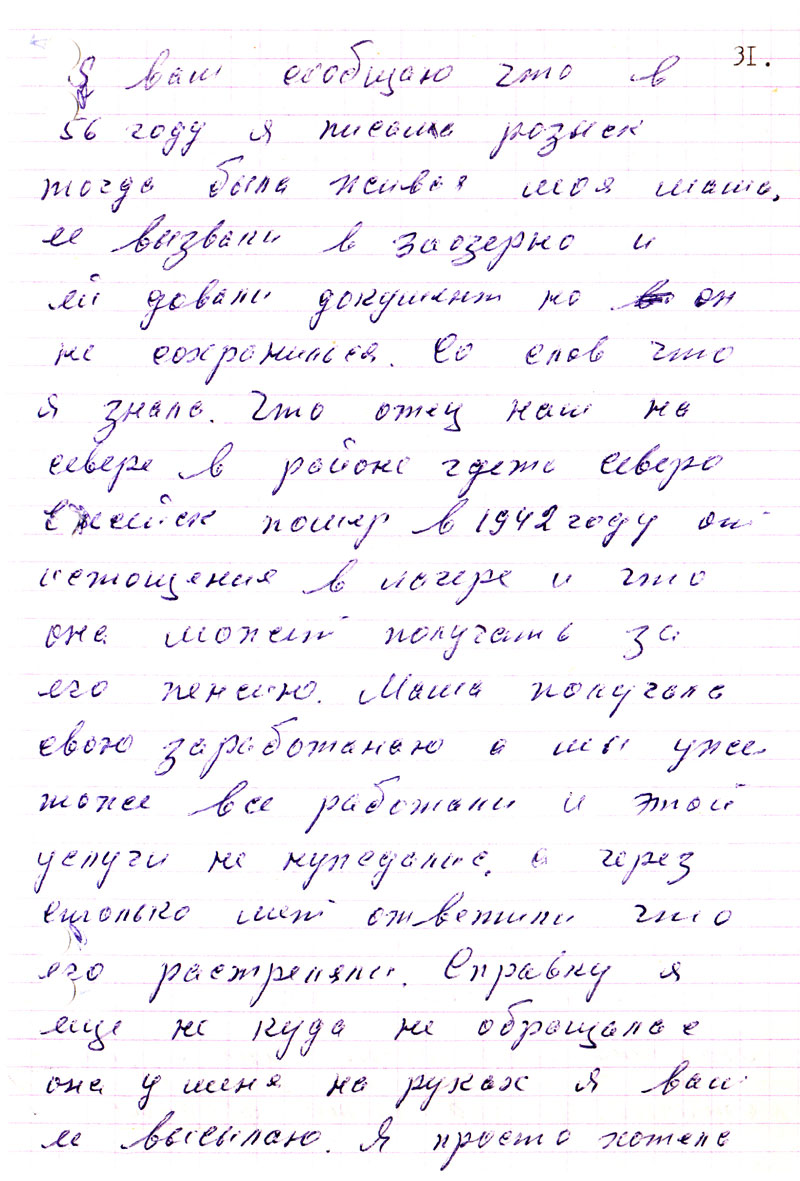 31.
Я вам сообщаю что в
56 году я писала розыск
тогда была живая моя мама,
ее вызвали в заозерно и
ей довали документ но он
не сохронился. Со слов что
я знала. Что отец наш на
севере в районе гдето северо
Енсейск помер в 1942 году от
истощения в лагере и что
она может получать за
его пенсию. Мама получала
свою заработаную а мы уже
тоже все работали и этой
услуги не нуждались, а через
столько лет ответили что
его растреляли. Справку я
еще не куда не обращалас
она у меня на руках я вам
ее высылаю. Я просто хотела